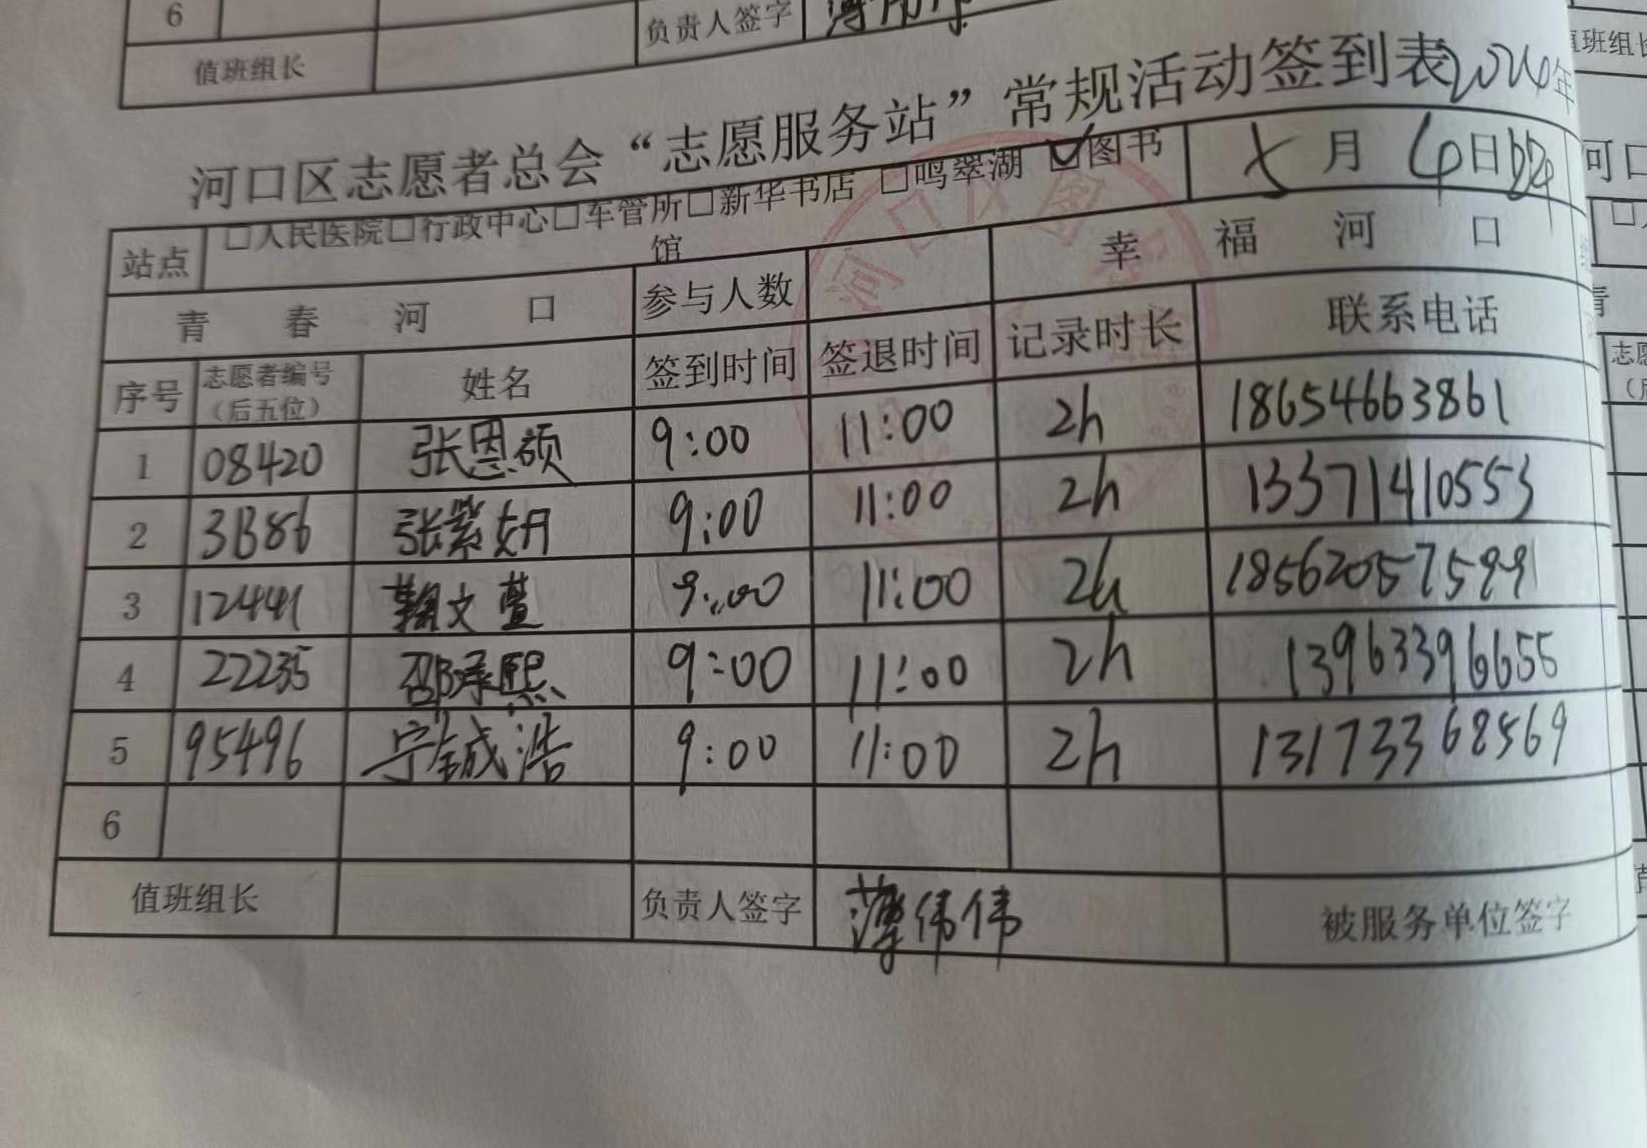 6
负责人签字
值班组长
值班组长
河口区志愿者总会“志愿服务站”常规活动签到表2024年
站点 □人民医院□行政中心□车管所□新华书店 □鸣翠湖 ☑图书馆 月 4日
青春河口 参与人数 幸福河口
序号 志愿者编号（后五位） 姓名 签到时间 签退时间 记录时长 联系电话
1 08420 张恩硕 9:00 11:00 2h 18654663861
2 3B86 张紫妍 9:00 11:00 2h 13371410553
3 12441 文萱 9:00 11:00 2h 18562057599
4 22235 邵承熙 9:00 11:00 2h 13963396655
5 95496 宁铖浩 9:00 11:00 2h 13173368569
6
值班组长 负责人签字 薄伟伟 被服务单位签字
河口